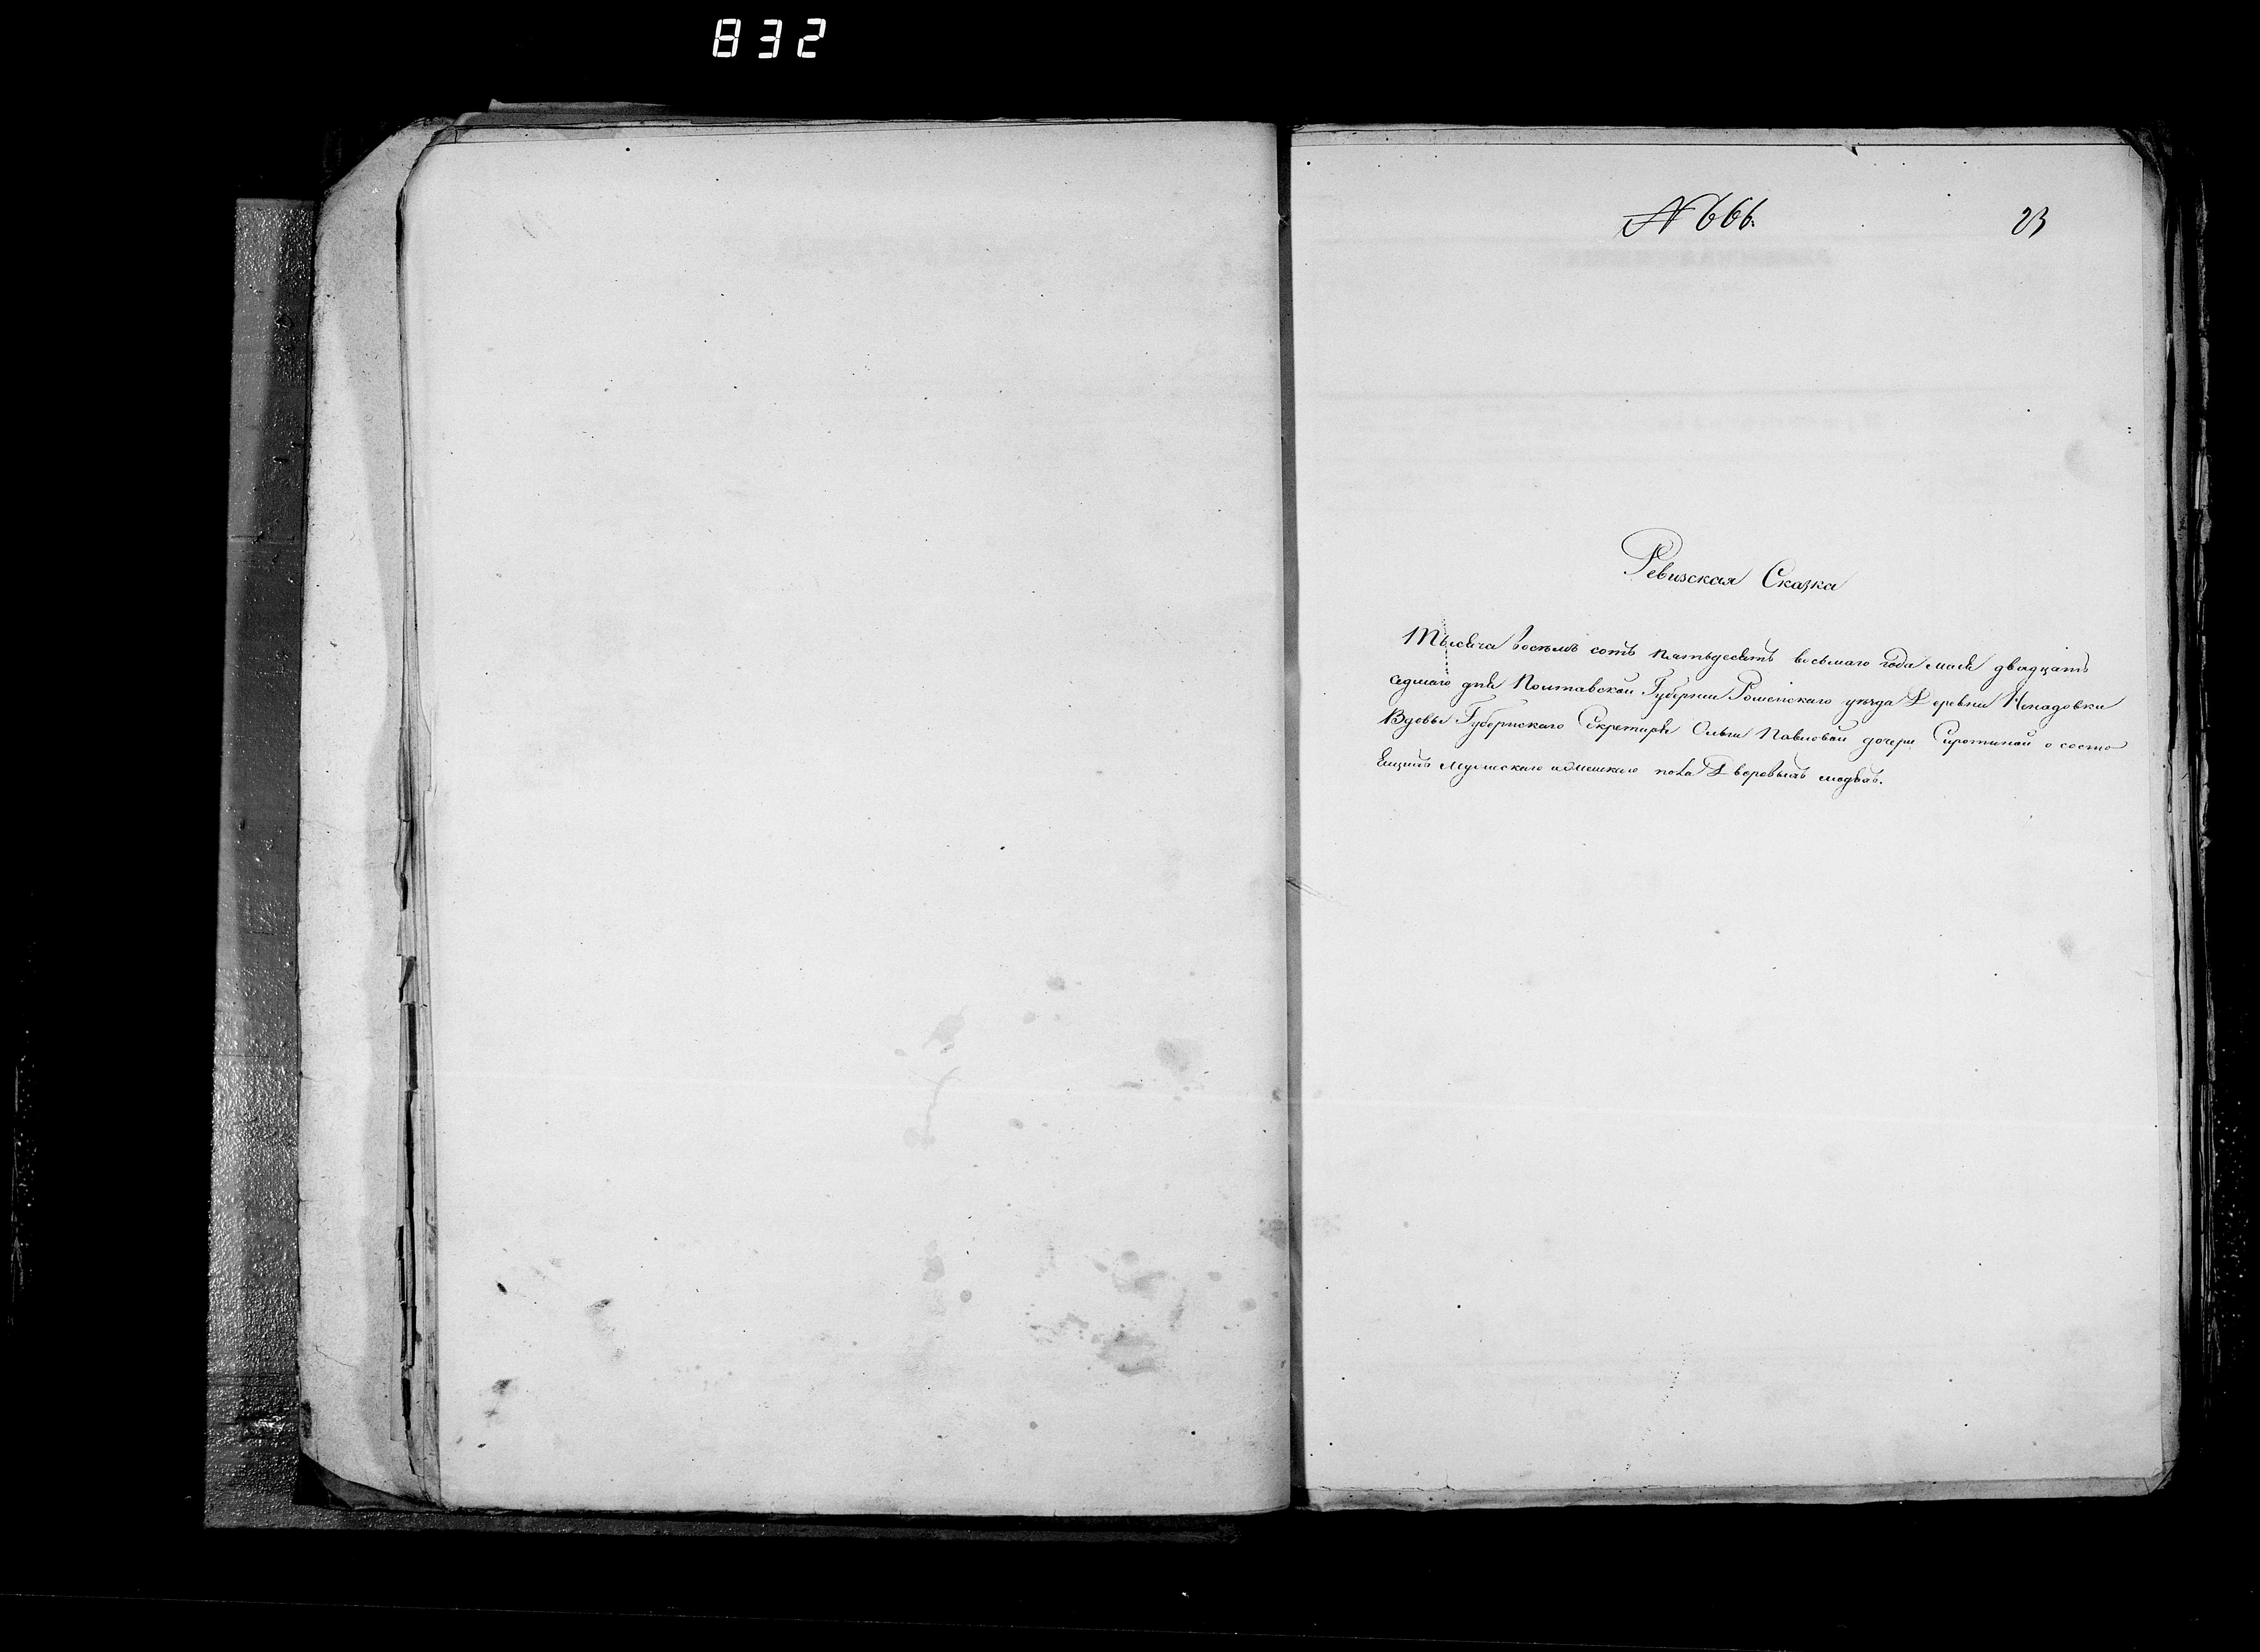 832
№ 666.
23
Ревизская Сказка
Тысяча восемь сотъ пятьдесятъ восьмаго года мая двадцать
седмаго дня Полтавской Губернии Роменскаго уезда Деревни
Вдовы Губернскаго Секретаря Ольги Павловой дочери Сиротиной о состо
ящихъ мужескаго и женскаго пола Дворовыхъ людяхъ.